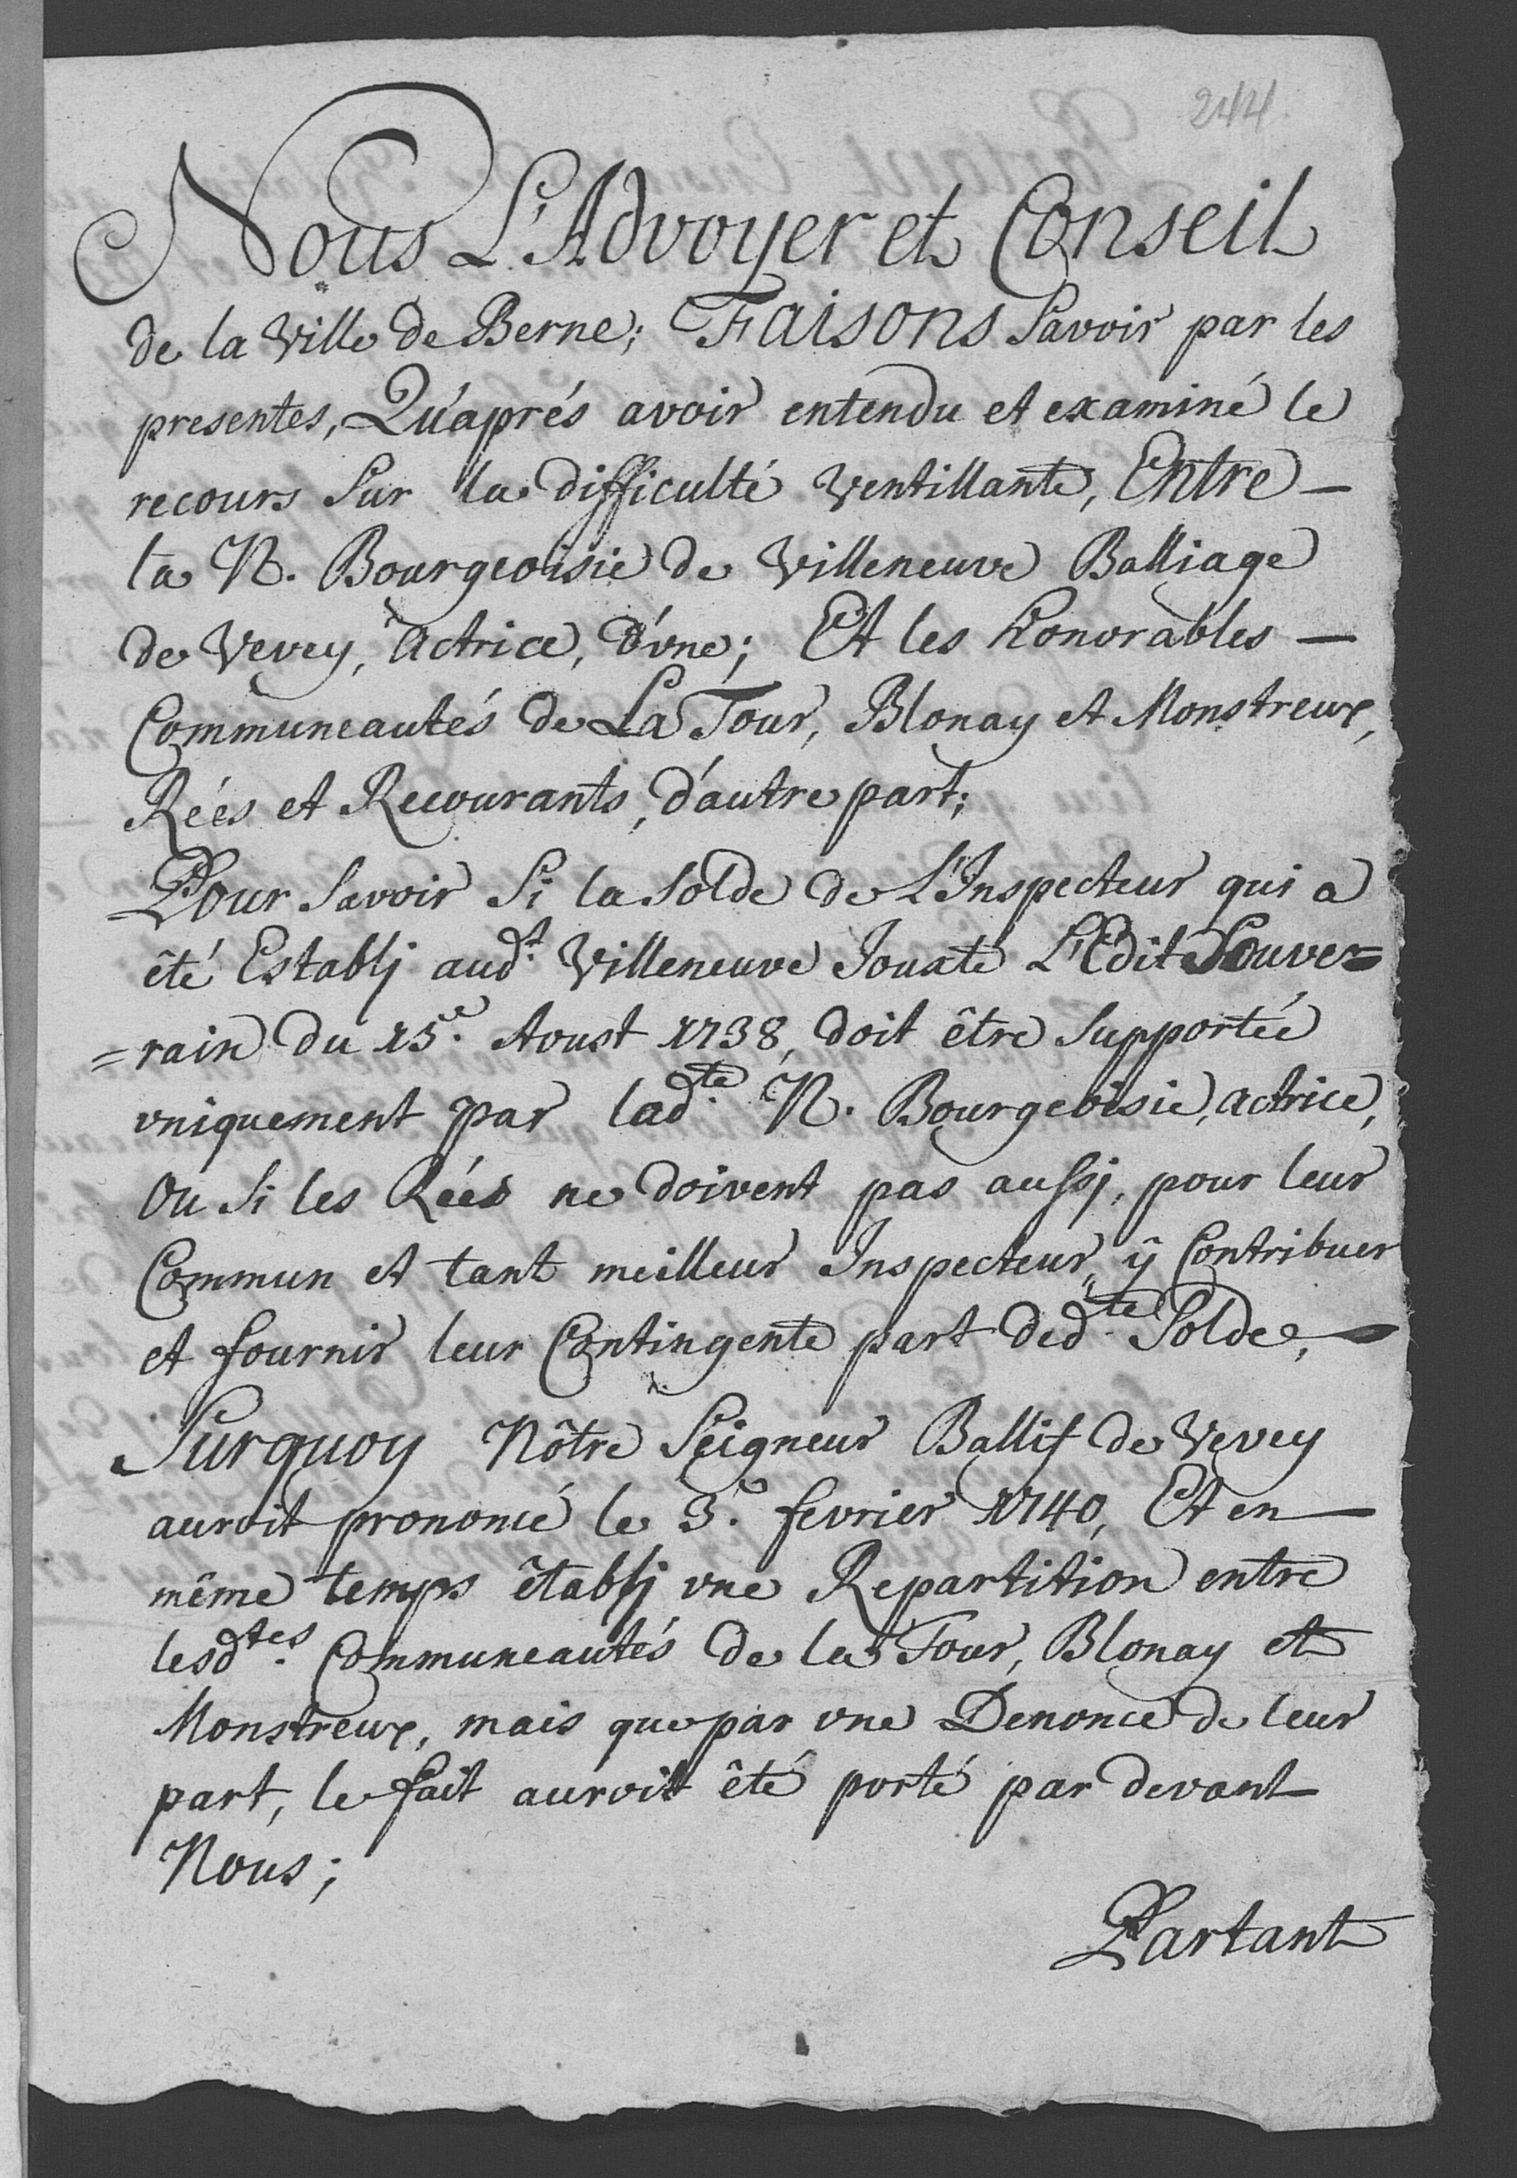 244.
Nous L'Advoyer et Conseil
de la Ville de Berne; Faisons Savoir par les
presentes, Qu'aprés avoir entendu et examiné le
recours Sur la difficulté Ventillante, Entre —
la N. Bourgeoisie de Villeneuve Balliage
de Vevey, Actrice, d'vne; Et les Honorables —
Communeautés de La Tour, Blonay et Monstreux,
Rées et Recourants, d'autre part;
Pour Savoir Si la Solde de L'Inspecteur qui a
êté Establj aud.t Villeneuve Jouxte L'Edit Souve=
=rain du 15.e Aoust 1738, doit être Supportée
vniquement par lad.te N. Bourgeoisie, actrice,
Ou Si les Rées ne doivent pas aussj, pour leur
Commun et tant meilleur Inspecteur, ÿ Contribuer
et fournir leur Contingente part ded.te Solde, —
Surquoy Nôtre Seigneur Ballif de Vevey
auroit prononcé le 3.e fevrier 1740, Et en —
même temps êtablj vne Repartition entre
lesd.tes Communeautés de la Tour, Blonay et
Monstreux, mais que par vne Denonce de leur
part, le fait auroit êté porté par devant
Nous;
Partant